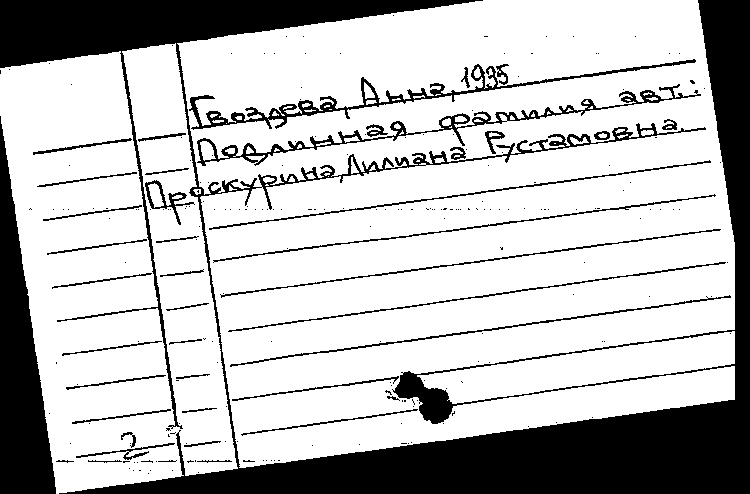 Гвоздева, Анна, 1935
Подлинная фамилия авт.:
Проскурина, Лилиана Рустамовна.
2